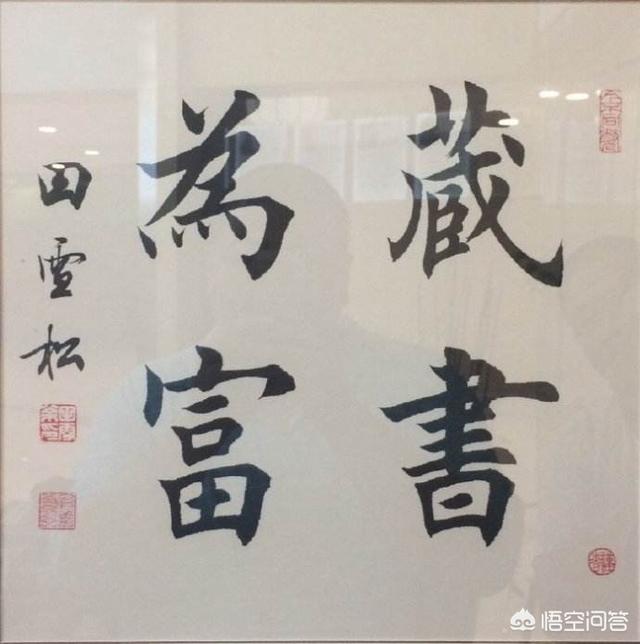 藏書
為富
田雪松
悟空问答